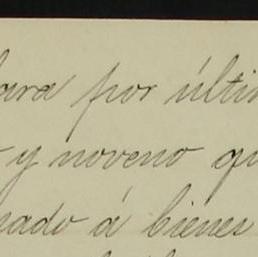 para por últi
y noveno qu
nado á bienes